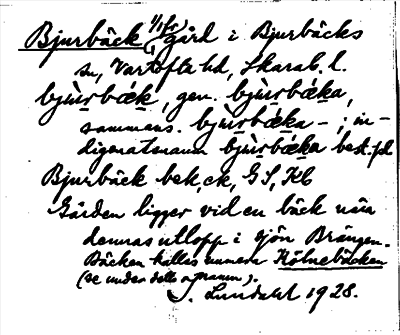 Bjurbäck 1/1 fr, gård i Bjurbäcks
sn, Vartofta hd, Skarab. l.
bju̇rbǽk, gen. bju̇rbǽka,
sammans. bju̇rbǽka- ; in-
digenatsnamn bju̇rbǽka best. pl.
Bjurbäck bek, ek, GS, Kb
Gården ligger vid en bäck nära
dennas utlopp i sjön Brängen.
Bäcken kallas numera Kölnebäcken
(se under detta ögranamn).
Lundahl 1928.